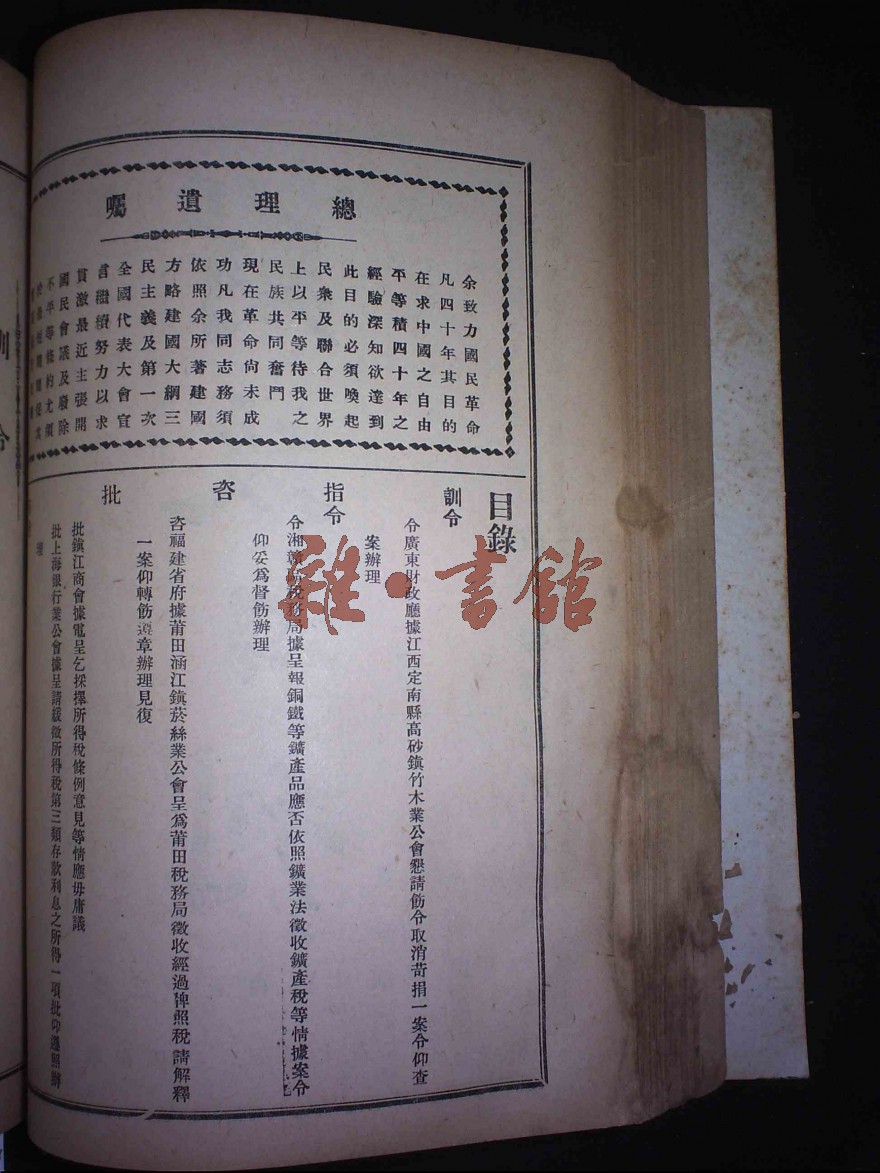 總理遺囑
余致力國民革命
凡四十年其目的
在求中國之自由
平等積四十年之
經驗深知欲達到
此目的必須喚起
民衆及聯合世界
上以平等待我之
民族共同奮鬥
現在革命尙未成
功凡我同志務須
依照余所著建國
方略建國大綱三
民主義及第一次
全國代表大會宣
言繼續努力以求
貫澈最近主張開
國民會議及廢除
不平等條約尤須
於最短期間促其
目錄
訓令
令廣東財政廳據江西定南縣高砂鎭竹木業公會懇請飭令取消苛捐一案令仰查
案辦理
指令
令湘贛區稅務局據呈報銅鐵等鑛產品應否依照鑛業法徵收鑛產稅等情據案令
仰妥爲督飭辦理
咨
咨福建省府據莆田涵江鎭菸絲業公會呈爲莆田稅務局徵收經過牌照稅請解釋
一案仰轉飭遵章辦理見復
批
批鎭江商會據電呈乞採擇所得稅條例意見等情應毋庸議
批上海銀行業公會據呈請緩徵所得稅第三類存款利息之所得一項批仰遵照辦
理
訓令
雜·書館